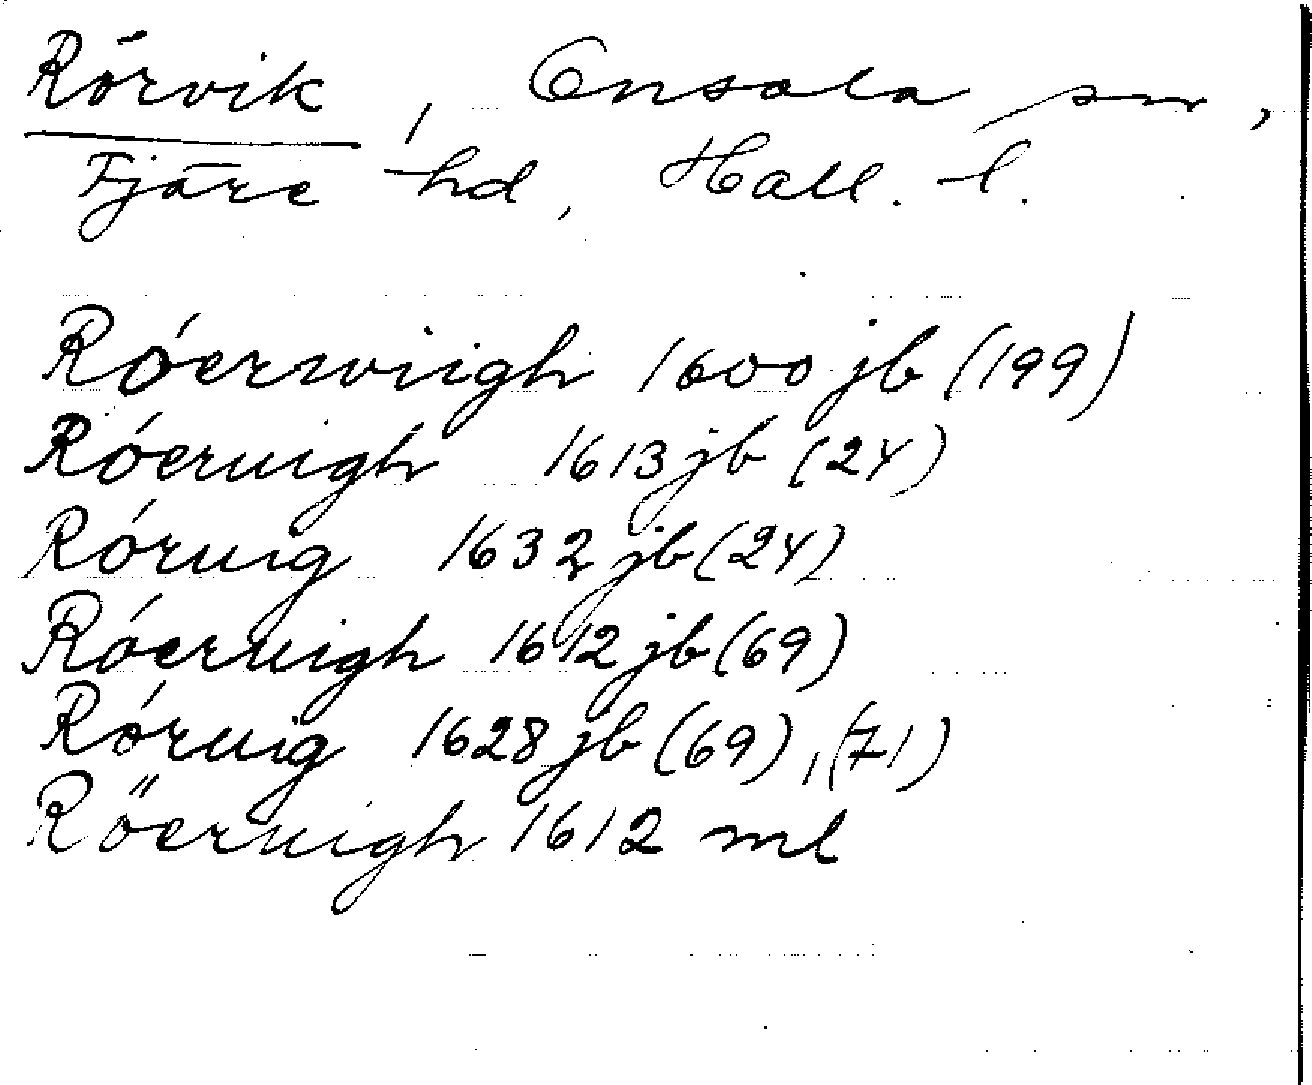 Rörvik, Onsala sn,
Fjäre hd, Hall. l.
Róerwiigh 1600 jb (199)
Róeruigh 1613 jb (24)
Róruig 1632 jb (24)
Róeruigh 1612 jb (69)
Róruig 1628 jb (69), (71)
Röeruigh 1612 ml